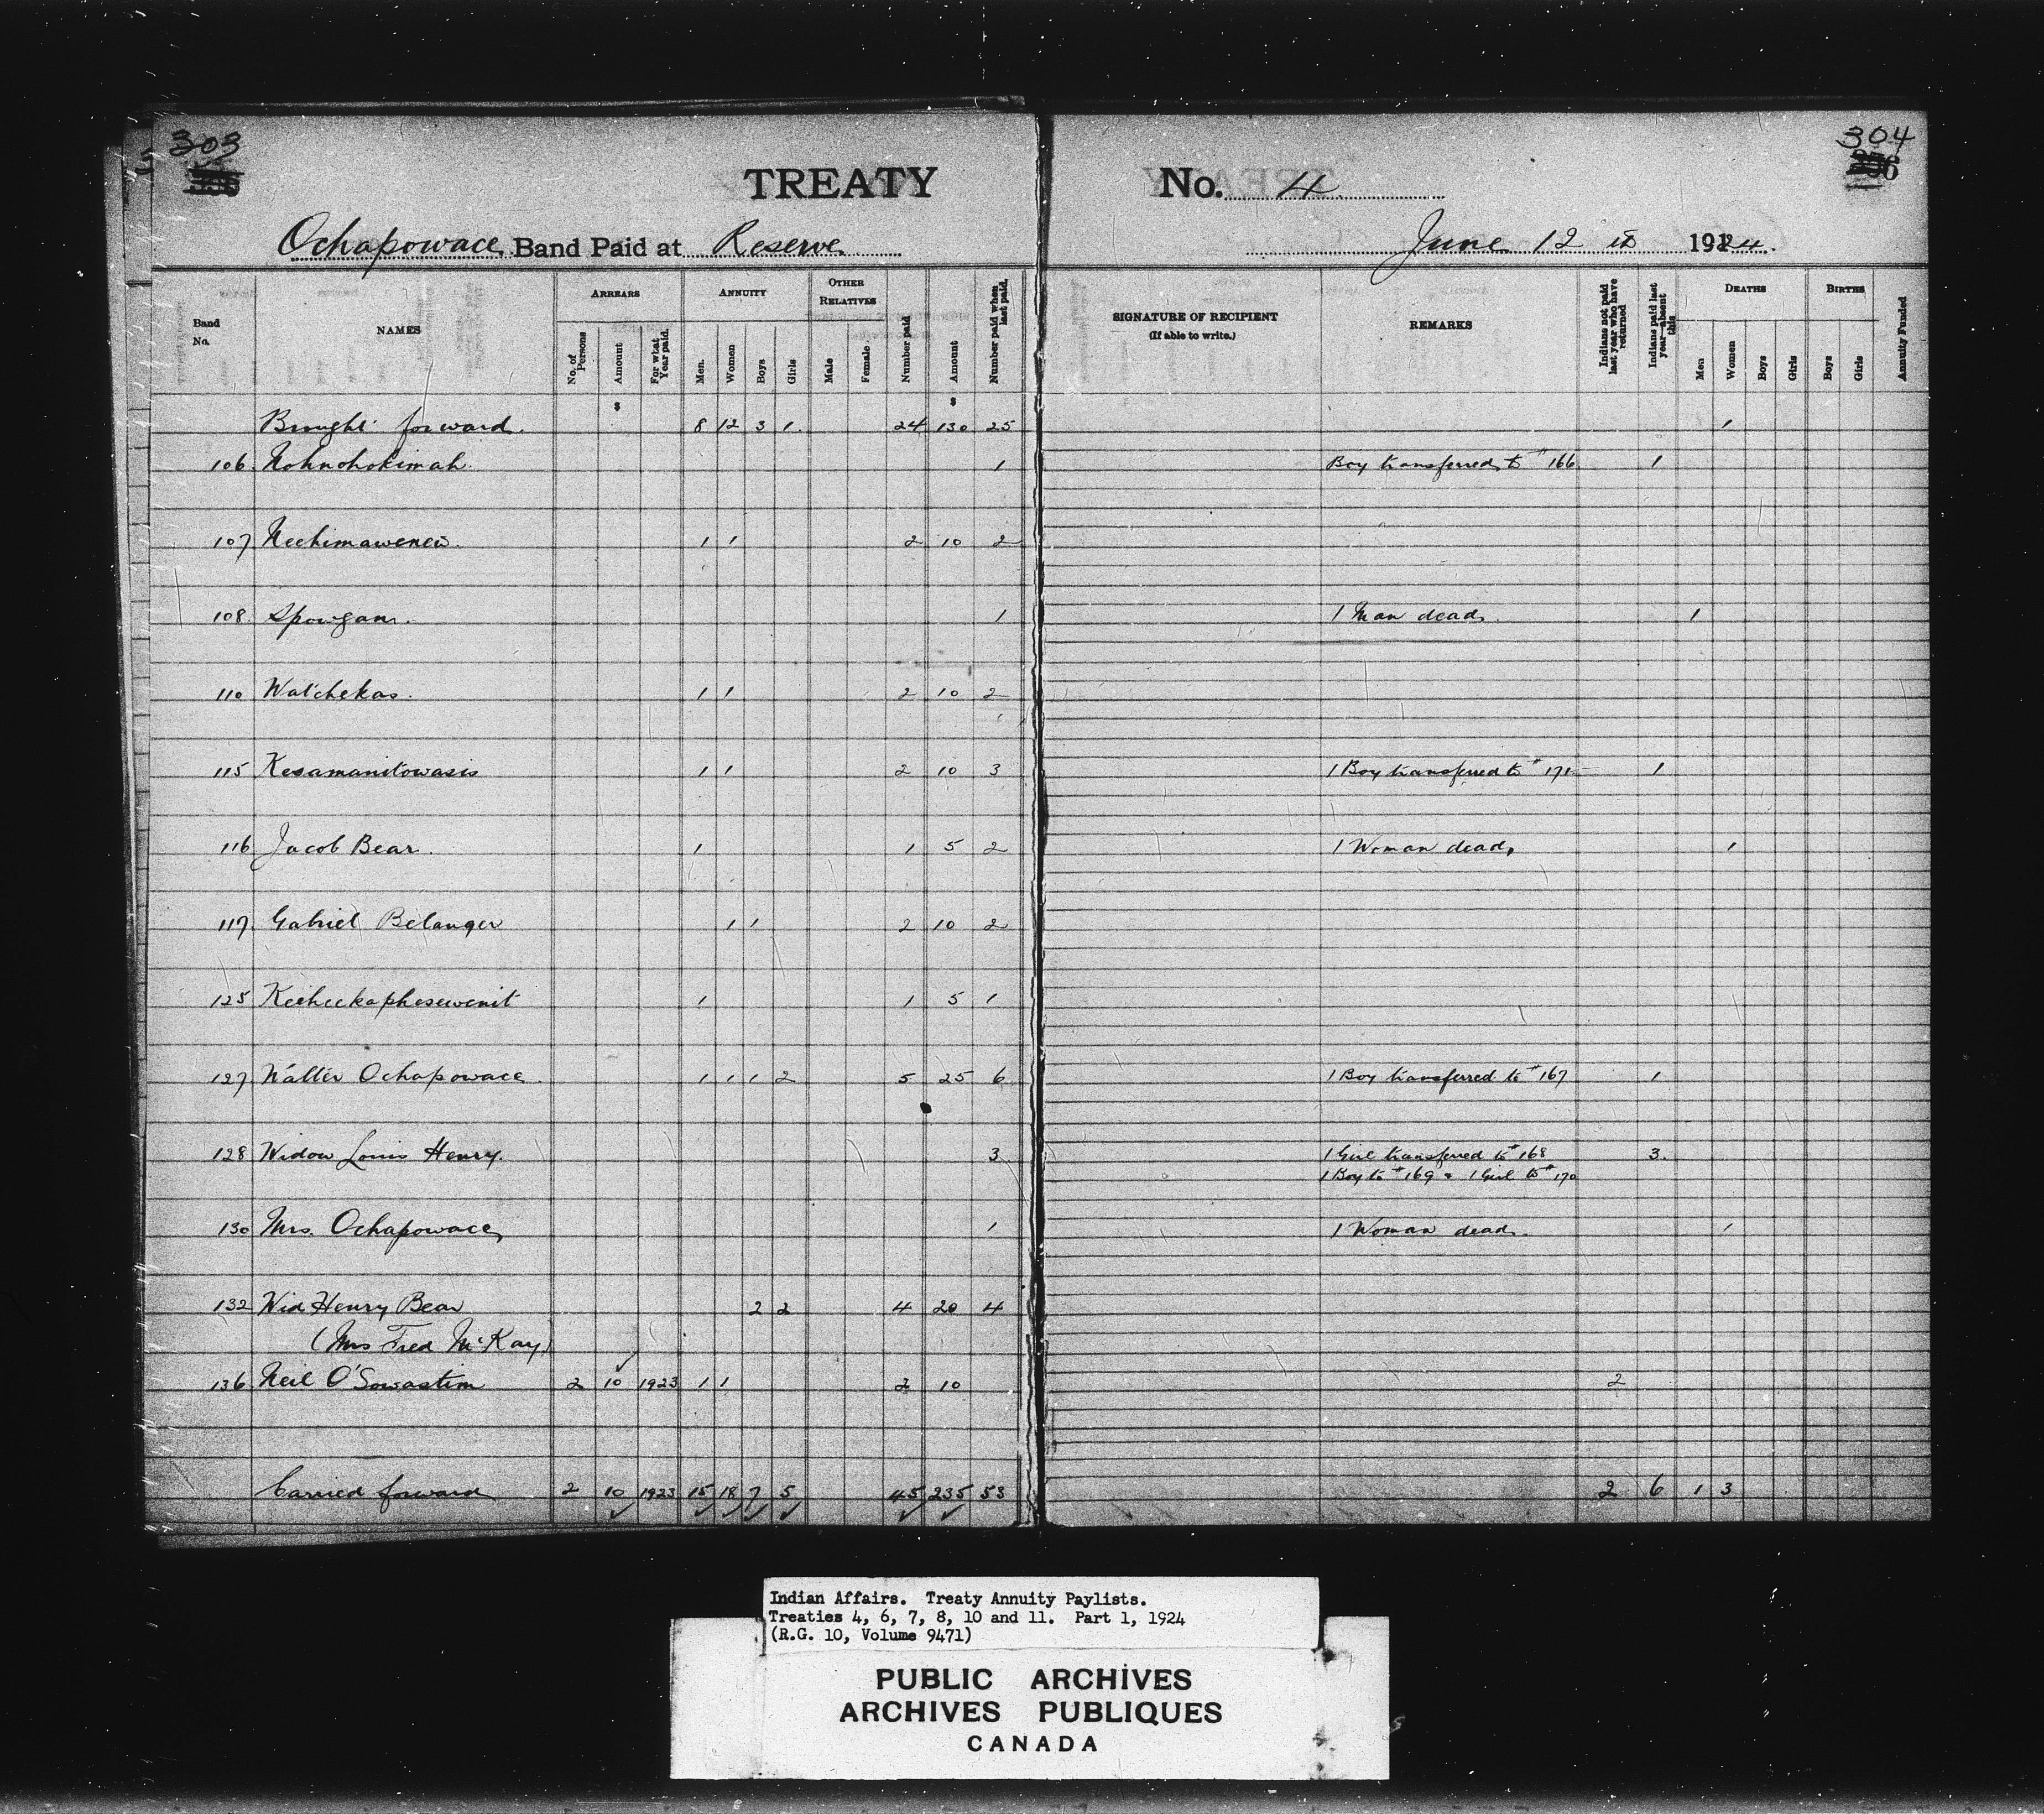 303
304
TREATY No. 4
Ochapowace Band Paid at Reserve June 12th 1924.
Band No.
NAMES
ARREARS
No. of Persons
Amount
For what Year paid.
ANNUITY
Men.
Women
Boys
Girls
OTHER RELATIVES
Male
Female
Number paid
Amount
Number paid when last paid.
SIGNATURE OF RECIPIENT
(If able to write.)
REMARKS
Indians not paid last year who have returned
Indians paid last year—absent this
DEATHS
Men
Women
Boys
Girls
BIRTHS
Boys
Girls
Annuity Funded
$ $
Brought forward. 8 12 3 1. 24 130 25 1
106. Nohnohokimah. 1 Boy transferred to #166 1
107 Nechimawenew. 1 1 2 10 2
108. Spowgan. 1 1 Man dead. 1
110 Watchekas. 1 1 2 10 2
115 Kesamanitowasis 1 1 2 10 3 1 Boy transferred to #171 1
116 Jacob Bear. 1 1 5 2 1 Woman dead. 1
117. Gabriel Belanger 1 1 2 10 2
125 Kecheekaphesewenit 1 1 5 1
127 Walter Ochapowace. 1 1 1 2 5 25 6 1 Boy transferred to #167 1
128 Widow Louis Henry. 3 1 Girl transferred to #168 3.
1 Boy to #169 & 1 Girl to #170
130 Mrs. Ochapowace, 1 1 Woman dead. 1
132 Wid Henry Bear 2 2 4 20 4
(Mrs Fred McKay)
136 Neil O'Sowastim 2 10 1923 1 1 2 10 2
Carried forward 2 10 1923 15 18 7 5 45 235 53 2 6 1 3
Indian Affairs. Treaty Annuity Paylists.
Treaties 4, 6, 7, 8, 10 and 11. Part 1, 1924
(R.G. 10, Volume 9471)
PUBLIC ARCHIVES
ARCHIVES PUBLIQUES
CANADA